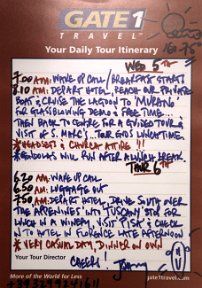 GATE 1
TRAVEL
Your Daily Tour Itinerary
WED 5TH
7.00 AM: WAKE UP CALL / BREAKFAST STARTS
8.10 AM: DEPART HOTEL, REACH OUR PRIVATE
BOAT & CRUISE THE LAGOON TO 'MURANO'
FOR GLASSBLOWING DEMO & FREE TIME...
THEN BACK TO CENTRE FOR A GUIDED TOUR &
VISIT OF S. MARC'S... TOUR ENDS LUNCHTIME.
*HEADSETS & CHURCH ATTIRE !!!
*GONDOLAS WILL RUN AFTER A LUNCH BREAK.
6TH
6.20 AM: WAKE UP CALL
6.50 AM: LUGGAGE OUT
7.50 AM: DEPART HOTEL, DRIVE SOUTH OVER
THE APPENINES INTO TUSCANY. STOP FOR
LUNCH IN A WINERY, VISIT 'PISA' & CHECK
INTO HOTEL IN FLORENCE LATE AFTERNOON
* VERY CASUAL DAY, DINNER ON OWN
Your Tour Director
CHEERS!
More of the World for Less
gate1travel.com